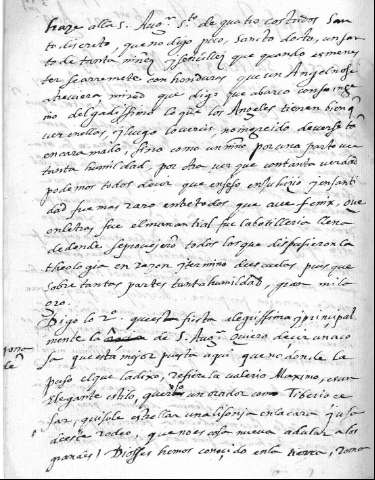 haze alla S. Augn. Sto. de quatro costados, San
to discreto, que no digo poco, Sancto docto, un san
to de tanta niñez y sencillez que quando es menes
ter se arremete con honduras que un Angel no se
atreviera, mirad que digo que abarco con su inge
nio delgadissimo lo que los Angeles tienen bien q
ver en ellos, y luego lo vereis
encaramado, sino como un niño por una parte ve
tanta humildad, por otra ver que con tanta verdad
podemos todos decir que en seso en saber y en santi
dad fue mas raro entre todos que ave fenix, que
en letras fue el manantial fue la botilleria llena
de donde se proveyero todos los que dispusieron la
theologia en razon y termino de escuelas, pues que
sobre tantas partes tanta humildad, gran mila
gro.
Digo lo 2o. que esta fiesta alegrissima y principal
mente la de S. Augn. quiero decir una co
sa que esta mejor puesta aqui, que no donde la
puso el que la dixo, refiere la valerio Maximo, con
elegante estilo, que un orador a Tiberio ce
sar, quisole estrellar una lisonja en la cara y usa
de este rodeo, que no es cosa nueva adular a los
grandes! Dioses hemos conocido en la tierra, Roma